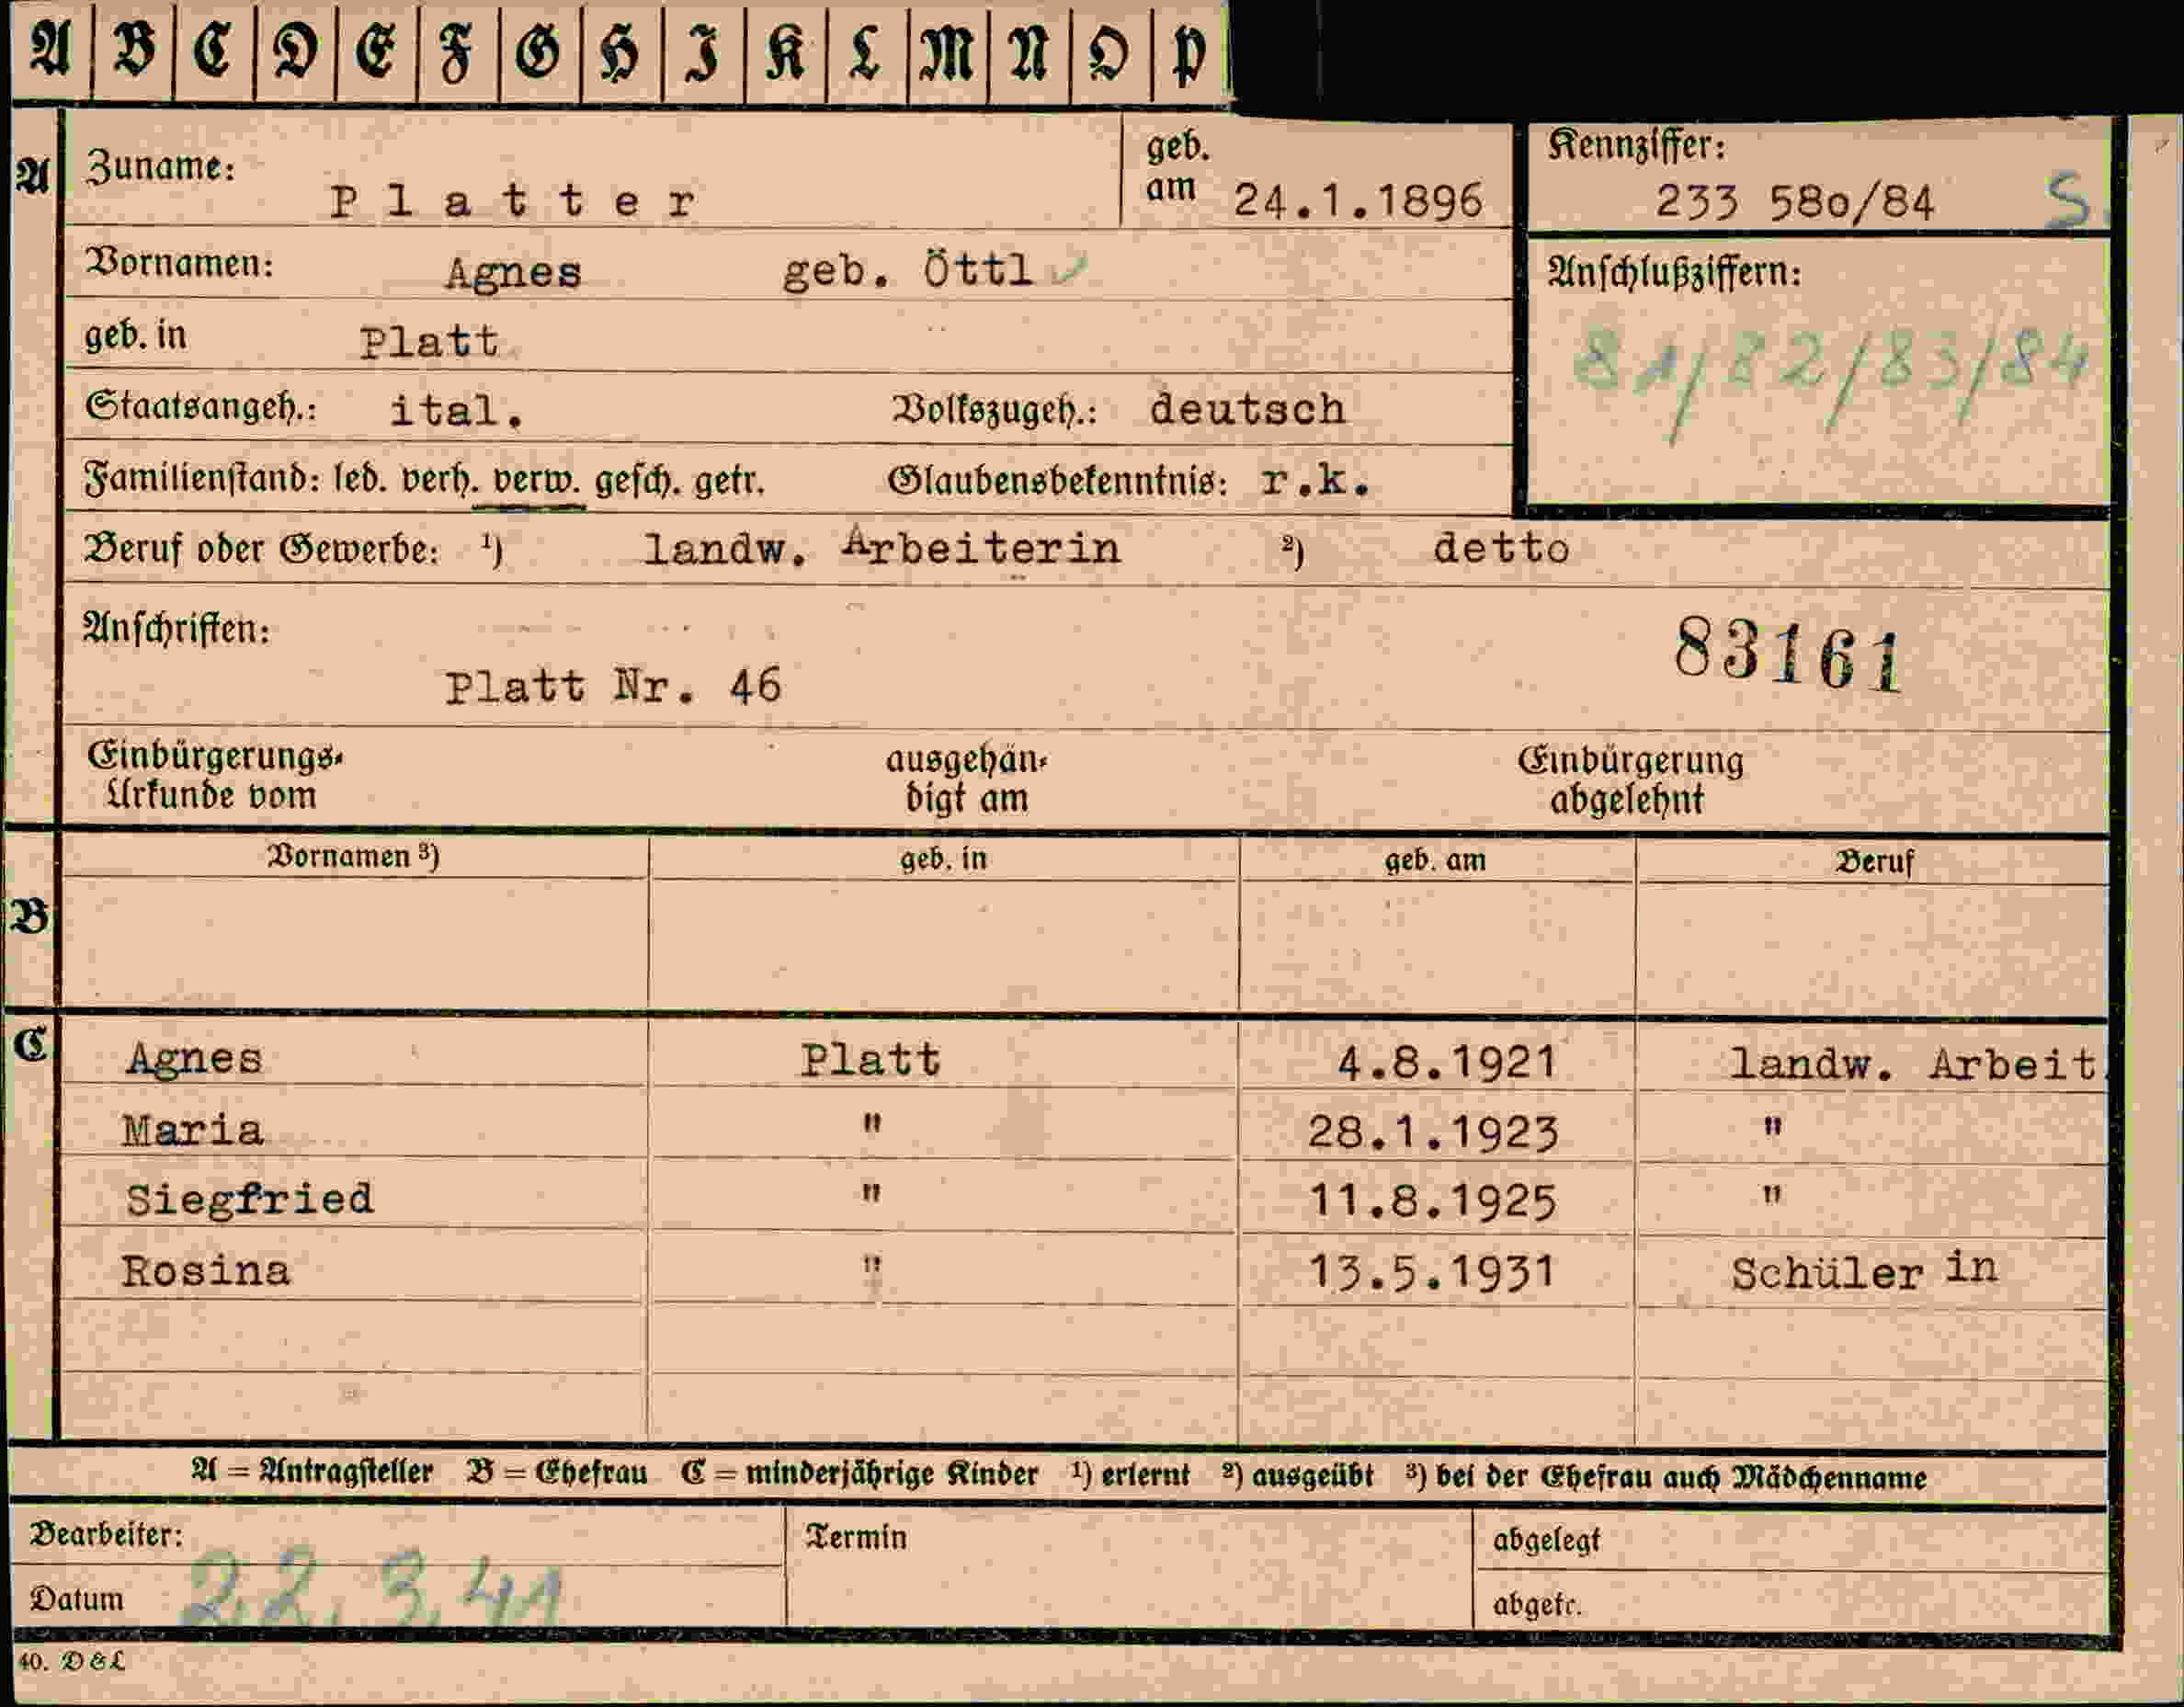 A B C D E F G H I K L M N O P
A
Zuname: Platter geb. am 24.1.1896
Kennziffer: 233 580/84 S
Vornamen: Agnes geb. Öttl
Anschlußziffern: 81/82/83/84
geb. in Platt
Staatsangeh.: ital. Volkszugeh.: deutsch
Familienstand: led. verh. verw. gesch. getr. Glaubensbekenntnis: r.k.
Beruf oder Gewerbe: ¹) landw. Arbeiterin ²) detto
Anschriften: 83161
Platt Nr. 46
Einbürgerungs- ausgehän- Einbürgerung
Urkunde vom digt am abgelehnt
Vornamen ³) geb. in geb. am Beruf
B
C
Agnes Platt 4.8.1921 landw. Arbeit
Maria " 28.1.1923 "
Siegfried " 11.8.1925 "
Rosina " 13.5.1931 Schüler in
A = Antragsteller B = Ehefrau C = minderjährige Kinder ¹) erlernt ²) ausgeübt ³) bei der Ehefrau auch Mädchenname
Bearbeiter: Termin abgelegt
Datum 22.3.41 abgetr.
40. D&L